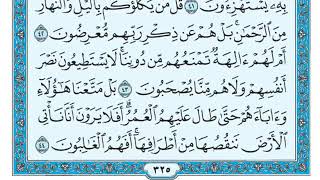 بِهِۦ يَسْتَهْزِءُونَ ٤١ قُلْ مَن يَكْلَؤُكُم بِٱلَّيْلِ وَٱلنَّهَارِ
مِنَ ٱلرَّحْمَٰنِ ۗ بَلْ هُمْ عَن ذِكْرِ رَبِّهِم مُّعْرِضُونَ ٤٢
أَمْ لَهُمْ ءَالِهَةٌ تَمْنَعُهُم مِّن دُونِنَا ۚ لَا يَسْتَطِيعُونَ نَصْرَ
أَنفُسِهِمْ وَلَا هُم مِّنَّا يُصْحَبُونَ ٤٣ بَلْ مَتَّعْنَا هَٰٓؤُلَآءِ
وَءَابَآءَهُمْ حَتَّىٰ طَالَ عَلَيْهِمُ ٱلْعُمُرُ ۗ أَفَلَا يَرَوْنَ أَنَّا نَأْتِي
ٱلْأَرْضَ نَنقُصُهَا مِنْ أَطْرَافِهَآ ۚ أَفَهُمُ ٱلْغَٰلِبُونَ ٤٤
٣٢٥